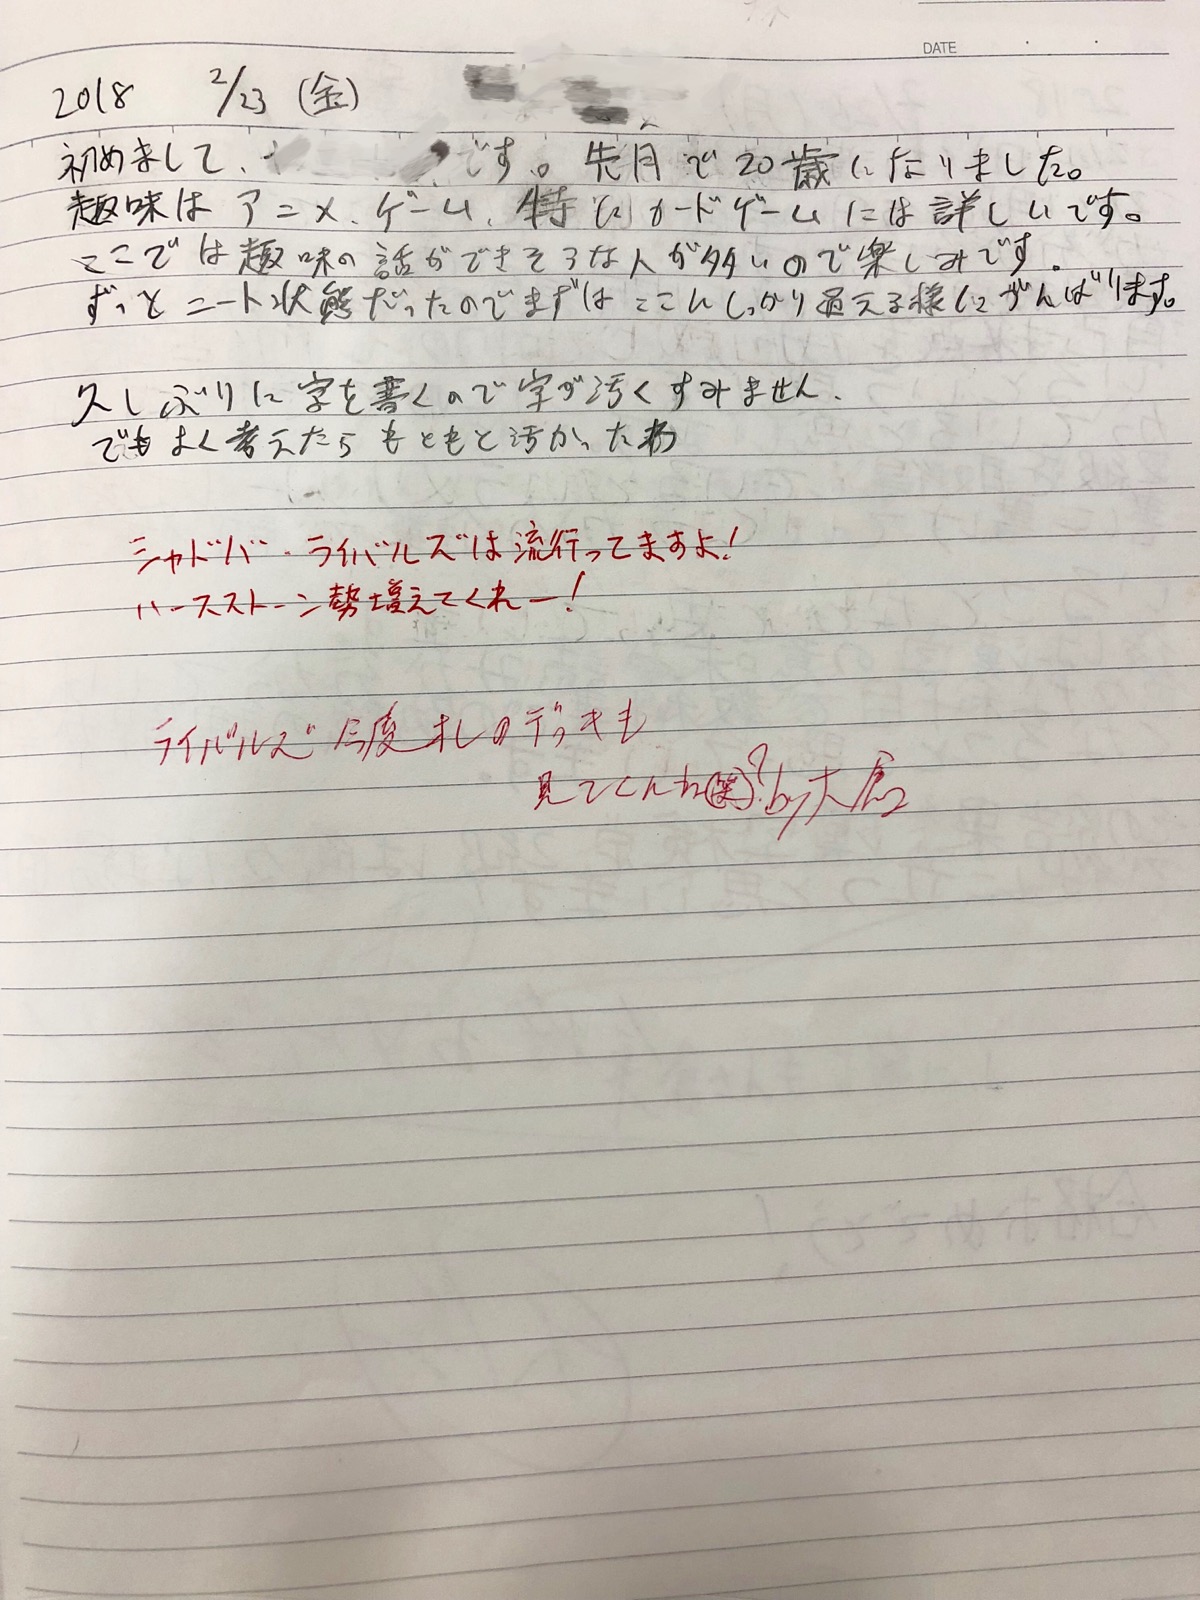 DATE
2018 2/23 (金)
初めまして、です。先月で20歳になりました。
趣味はアニメ、ゲーム、特にカードゲームには詳しいです。
ここでは趣味の話ができそうな人が多いので楽しみです。
ずっとニート状態だったのでまずはここにしっかり通える様にがんばります。
久しぶりに字を書くので字が汚くすみません.
でもよく考えたらもともと汚かったわ
シャドバ・ライバルズは流行ってますよ!
ハースストーン勢増えてくれー!
ライバルズ今度オレのデッキも
見てくんね(笑)? by 大
合格おめでとう!